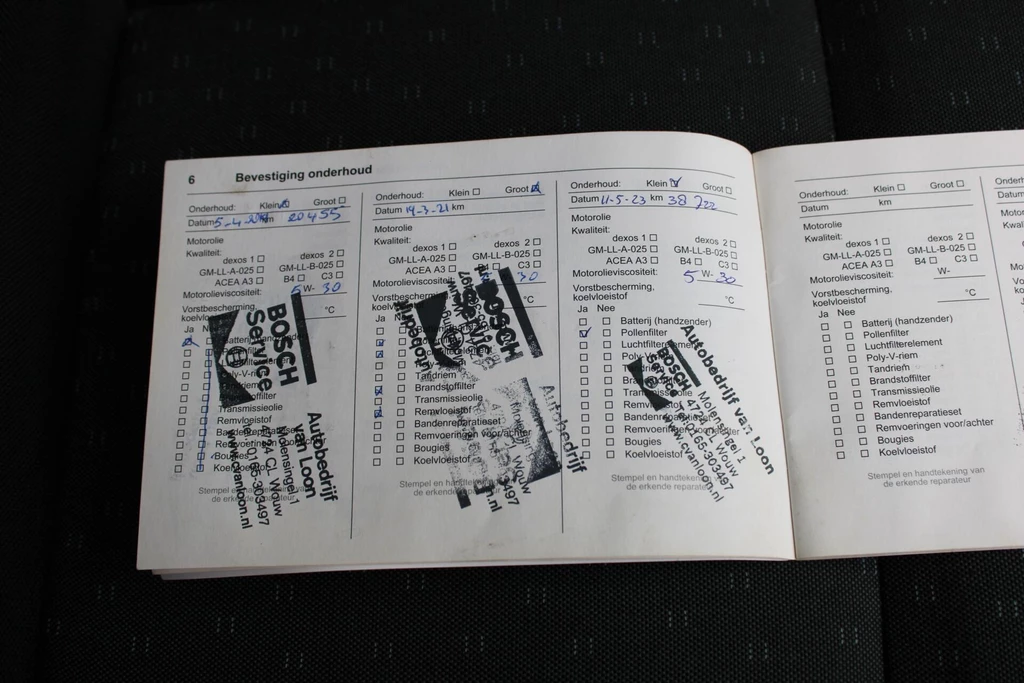 6 Bevestiging onderhoud
Onderhoud: Klein Groot
Datum 5-4- km 20455
Motorolie
Kwaliteit:
dexos 1 dexos 2
GM-LL-A-025 GM-LL-B-025
ACEA A3 B4 C3
Motorolieviscositeit: 5 W- 30
Vorstbescherming,
koelvloeistof °C
Ja
Poly-V-riem
Transmissieolie
Remvloeistof
Bougies
BOSCH
Service
Autobedrijf
van Loon
Molensingel 1
4724 CL Wouw
0165-303497
www.cvanloon.nl
Stempel en handtekening van
de erkende reparateur
Onderhoud: Klein Groot
Datum 19-3-21 km
Motorolie
Kwaliteit:
dexos 1 dexos 2
GM-LL-A-025
ACEA A3 C3
Motorolieviscositeit: 30
Vorstbescherming,
koelvloeistof
Ja
Tandriem
Brandstoffilter
Transmissieolie
Remvloeistof
Bandenreparatieset
Remvoeringen voor/achter
Bougies
Koelvloeistof
BOSCH
Autobedrijf
Stempel en handtekening
de erkende reparateur
Onderhoud: Klein Groot
Datum 11-5-23 km 38722
Motorolie
Kwaliteit:
dexos 1 dexos 2
GM-LL-A-025 GM-LL-B-025
ACEA A3 B4 C3
Motorolieviscositeit: 5 W- 30
Vorstbescherming,
koelvloeistof °C
Ja Nee
Batterij (handzender)
Pollenfilter
Luchtfilterelement
Poly-V-riem
Tandriem
Brandstoffilter
Transmissieolie
Remvloeistof
Bandenreparatieset
Remvoeringen voor/achter
Bougies
Koelvloeistof
BOSCH
Service
Autobedrijf van Loon
Molensingel 1
4724 CL Wouw
Tel. 0165-303497
www.cvanloon.nl
Stempel en handtekening van
de erkende reparateur
Onderhoud: Klein Groot
Datum km
Motorolie
Kwaliteit:
dexos 1 dexos 2
GM-LL-A-025 GM-LL-B-025
ACEA A3 B4 C3
Motorolieviscositeit: W-
Vorstbescherming,
koelvloeistof °C
Ja Nee
Batterij (handzender)
Pollenfilter
Luchtfilterelement
Poly-V-riem
Tandriem
Brandstoffilter
Transmissieolie
Remvloeistof
Bandenreparatieset
Remvoeringen voor/achter
Bougies
Koelvloeistof
Stempel en handtekening van
de erkende reparateur